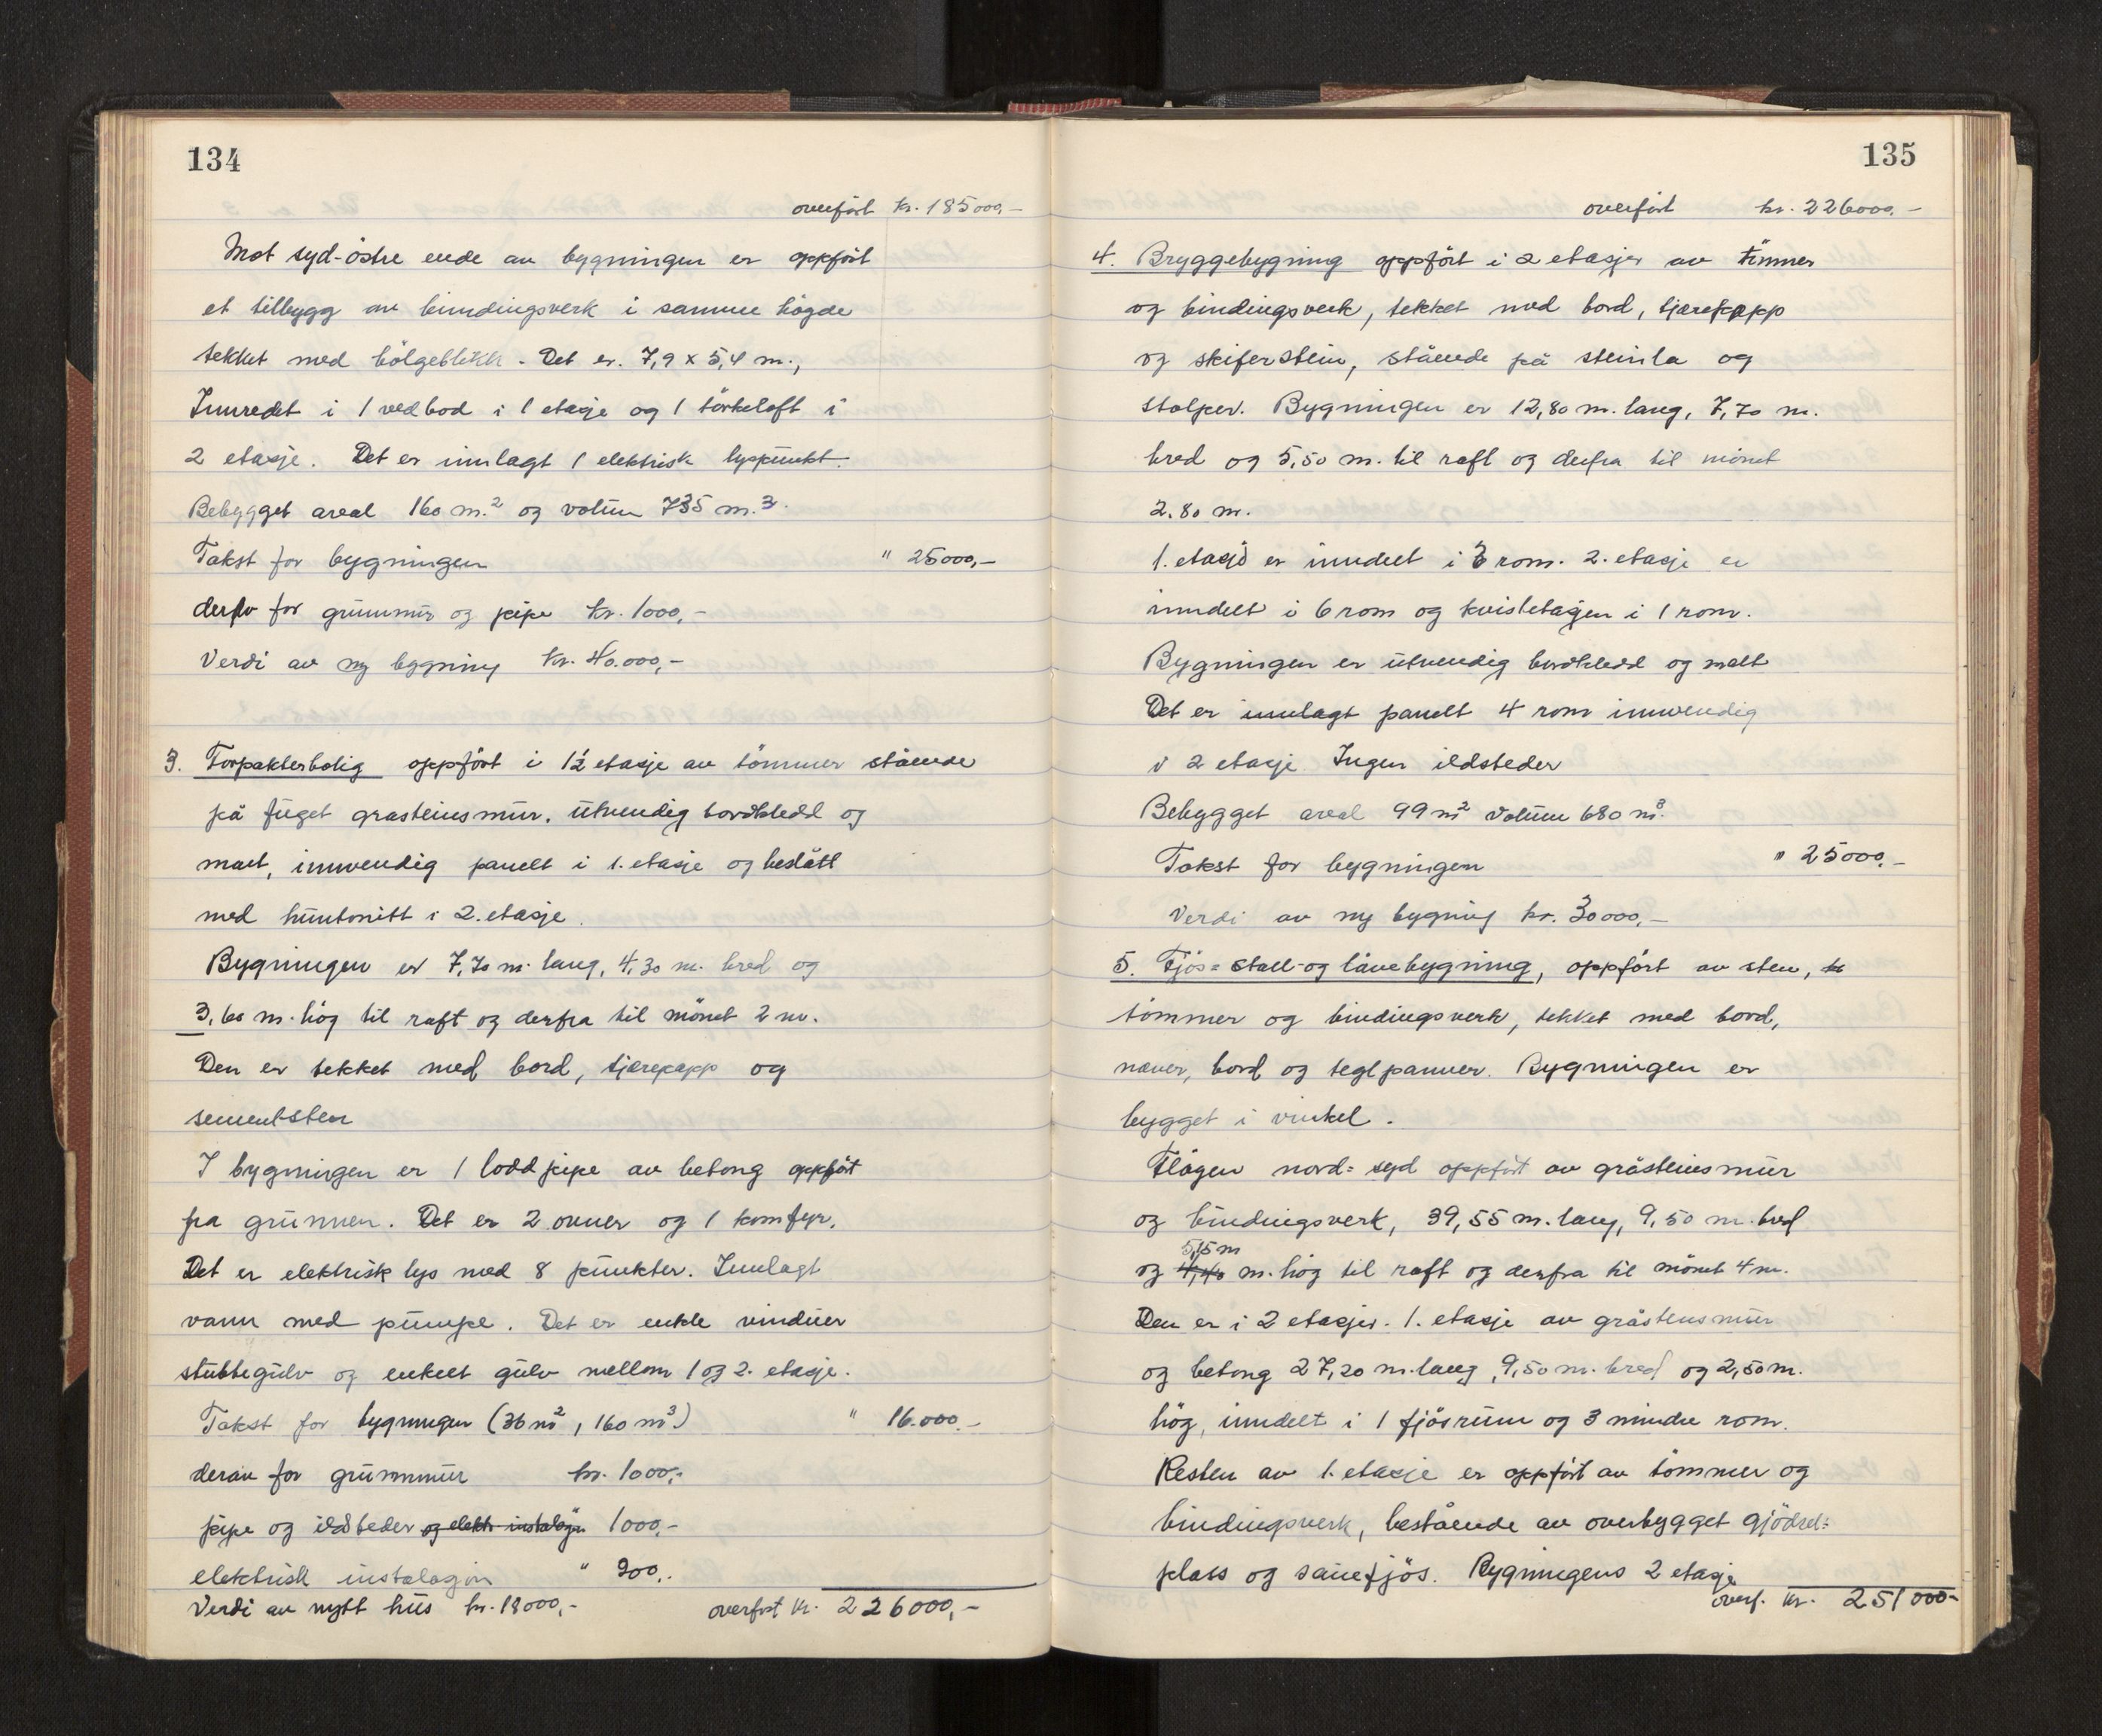 134
overført kr. 185000,-
Mot syd-östre ende av bygningen er oppfört
et tilbygg av bindingsverk i samme högde
tekket med bölgeblekk. Det er 7,9 x 5,4 m.,
Innredet i 1 vedbod i 1 etasje og 1 törkeloft i
2 etasje. Det er innlagt 1 elektrisk lyspunkt.
Bebygget areal 160 m.² og volum 735 m.³.
Takst for bygningen " 25000,-
derav for grunnmur og pipe kr. 1000,-
Verdi av ny bygning kr. 40.000,-
3. Forpakterbolig oppfört i 1½ etasje av tömmer stående
på fuget grasteinsmur. utvendig bordkledd og
malt, innvendig panelt i 1. etasje og beslått
med huntonitt i 2. etasje.
Bygningen er 7,70 m. lang, 4,30 m. bred og
3,60 m. hög til raft og derfra til mönet 2 m.
Den er tekket med bord, tjærepapp og
sementsten
I bygningen er 1 loddpipe av betong oppfört
fra grunnen. Det er 2 ovner og 1 komfyr.
Det er elektrisk lys med 8 punkter. Innlagt
vann med pumpe. Det er enkle vinduer
stubbegulv og enkelt gulv mellom 1 og 2. etasje.
Takst for bygningen (36 m², 160 m³) " 16.000.-
derav for grunnmur kr. 1000,-
pipe og ildsteder og elektr. instalasjon 1000,-
elektrisk instalasjon " 900,.
Verdi av nytt hus kr. 18000,- overført kr. 226000,-
135
overført kr. 226000,-
4. Bryggebygning oppfört i 2 etasjer av tömmer
og bindingsverk, tekket med bord, tjærepapp
og skiferstein, stående på steinla og
stolper. Bygningen er 12,80 m. lang, 7,70 m.
bred og 5,50 m. til raft og derfra til mönet
2.80 m.
1. etasje er inndelt i 3 rom. 2. etasje er
inndelt i 6 rom og kvistetasjen i 1 rom.
Bygningen er utvendig bordkledd og malt
Det er innlagt panelt 4 rom innvendig
i 2 etasje. Ingen ildsteder
Bebygget areal 99 m² volum 680 m³.
Takst for bygningen " 25000.-
Verdi av ny bygning kr. 30000,-
5. Fjös- stall- og låvebygning, oppfört av sten, tö
tömmer og bindingsverk, tekket med bord,
næver, bord og teglpanner. Bygningen er
bygget i vinkel.
Flögen nord- syd oppfört av gråsteinsmur
og bindingsverk, 39,55 m. lang, 9,50 m. bred
5,15 m
og 4,40 m. hög til raft og derfra til mönet 4 m.
Den er i 2 etasjer. 1. etasje av gråstensmur
og betong 27,20 m. lang, 9,50 m. bred og 2,50 m.
hög, inndelt i 1 fjösrum og 3 mindre rom.
Resten av 1. etasje er oppfört av tömmer og
bindingsverk, bestående av overbygget gjödsel-
plass og sauefjös. Bygningens 2 etasje
overf. kr. 251000-